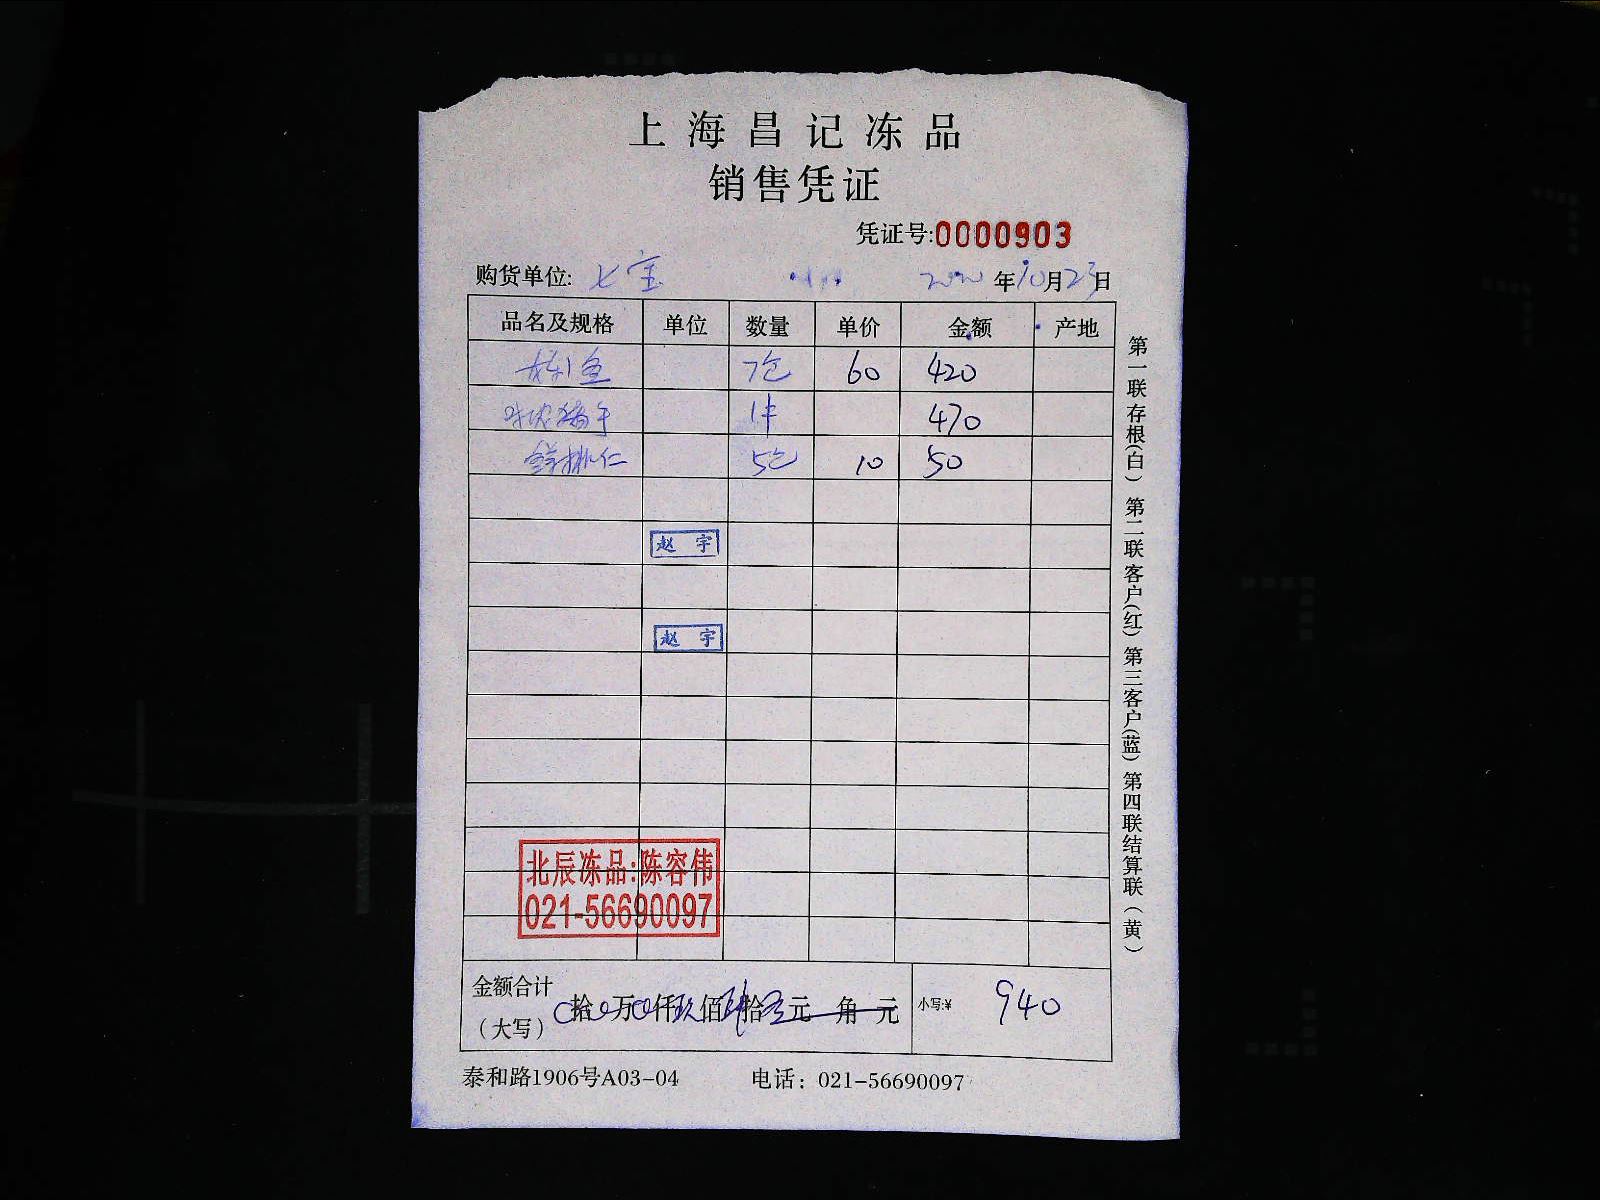 上海昌记冻品
销售凭证
凭证号:0000903
购货单位: 七宝 2020年10月23日
品名及规格 单位 数量 单价 金额 产地
鱼 7包 60 420
1件 470
仁 5包 10 50
赵 宇
赵 宇
北辰冻品:陈容伟
021-56690097
金额合计
(大写) 拾 万 仟玖佰肆拾 元 角 元 小写:¥ 940
泰和路1906号A03-04 电话: 021-56690097
第一联存根(白) 第二联客户(红) 第三客户(蓝) 第四联结算联(黄)